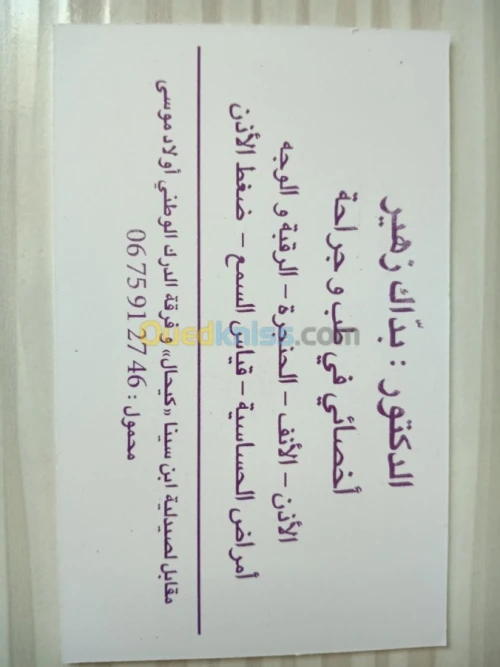 الدكتور : بدّاك زهير
أخصائي في طب و جراحة
الأذن - الأنف - الحنجرة - الرقبة و الوجه
أمراض الحساسية - قياس السمع - ضغط الأذن
مقابل لصيدلية ابن سينا «كيحال» و فرقة الدرك الوطني أولاد موسى
محمول : 0675 91 27 46
Ouedkniss.com